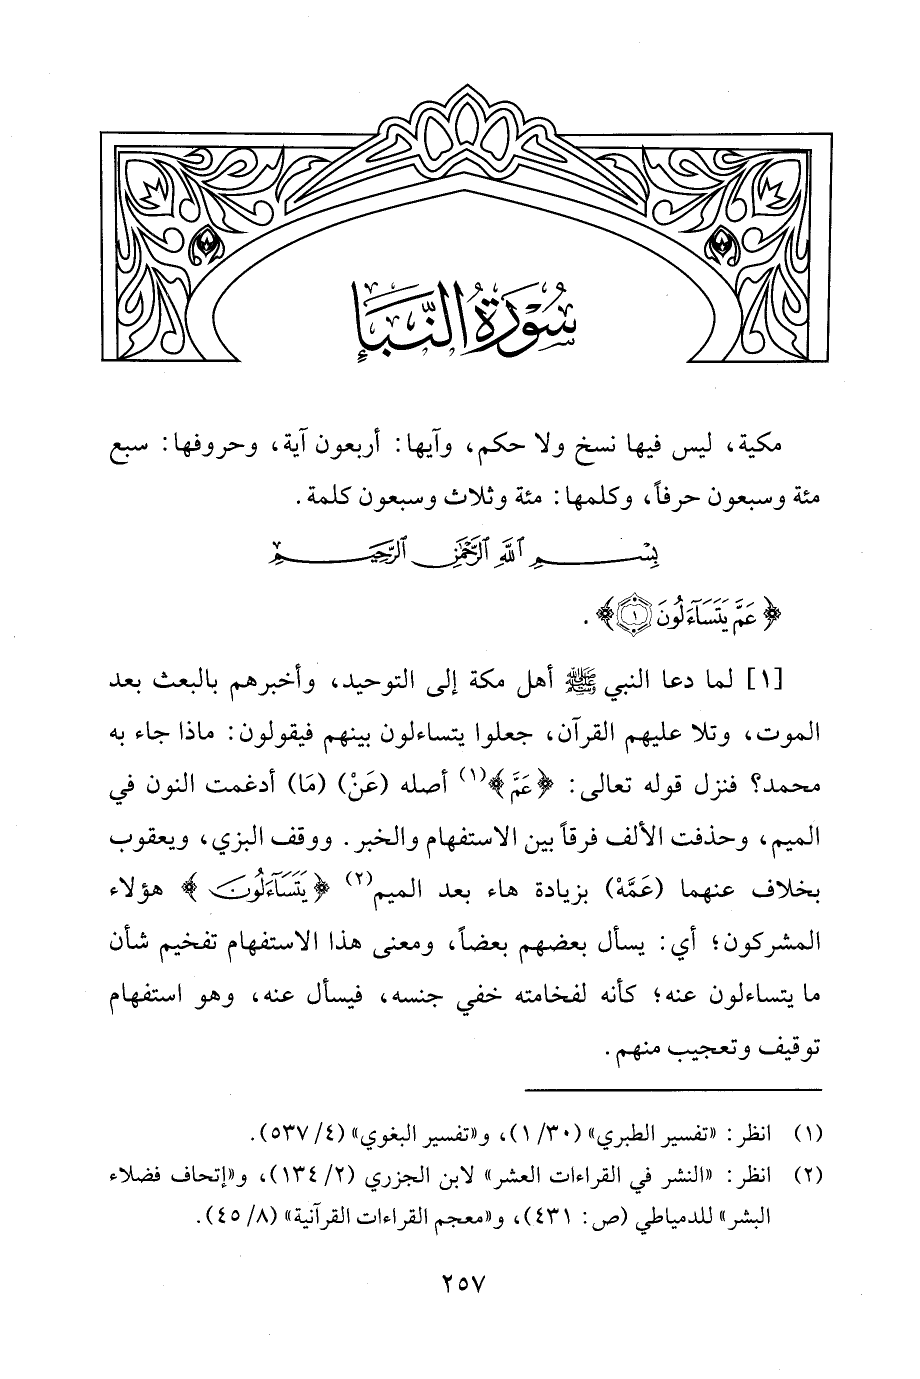 سُورَةُ النَّبَإِ
مكية، ليس فيها نسخ ولا حكم، وآيها: أربعون آية، وحروفها: سبع
مئة وسبعون حرفاً، وكلمها: مئة وثلاث وسبعون كلمة.
بِسْمِ ٱللَّهِ ٱلرَّحْمَٰنِ ٱلرَّحِيمِ
﴿عَمَّ يَتَسَآءَلُونَ ١﴾.
[١] لما دعا النبي ﷺ أهل مكة إلى التوحيد، وأخبرهم بالبعث بعد
الموت، وتلا عليهم القرآن، جعلوا يتساءلون بينهم فيقولون: ماذا جاء به
محمد؟ فنزل قوله تعالى: ﴿عَمَّ﴾(١) أصله (عَنْ) (مَا) أدغمت النون في
الميم، وحذفت الألف فرقاً بين الاستفهام والخبر. ووقف البزي، ويعقوب
بخلاف عنهما (عَمَّهْ) بزيادة هاء بعد الميم(٢) ﴿يَتَسَآءَلُونَ﴾ هؤلاء
المشركون؛ أي: يسأل بعضهم بعضاً، ومعنى هذا الاستفهام تفخيم شأن
ما يتساءلون عنه؛ كأنه لفخامته خفي جنسه، فيسأل عنه، وهو استفهام
توقيف وتعجيب منهم.
(١) انظر: «تفسير الطبري» (٣٠/ ١)، و«تفسير البغوي» (٤/ ٥٣٧).
(٢) انظر: «النشر في القراءات العشر» لابن الجزري (٢/ ١٣٤)، و«إتحاف فضلاء
البشر» للدمياطي (ص: ٤٣١)، و«معجم القراءات القرآنية» (٨/ ٤٥).
٢٥٧